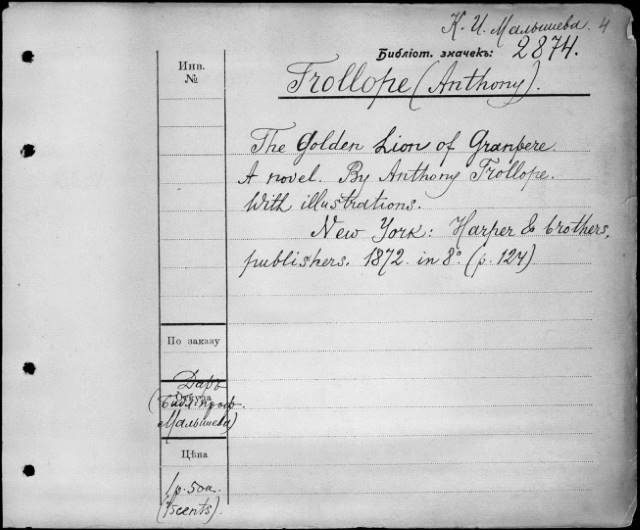 К. И. Малышева. 4
Библіот. значекъ: 2874.
Инв.
№
Trollope (Anthony).
The Golden Lion of Granpere
A novel. By Anthony Trollope.
With illustrations.
New York: Harper & brothers,
publishers. 1872 in 8° (p. 127)
По заказу
Даръ
Откуда
(Библ. проф.
Малышева)
Цѣна
1 р. 50 к.